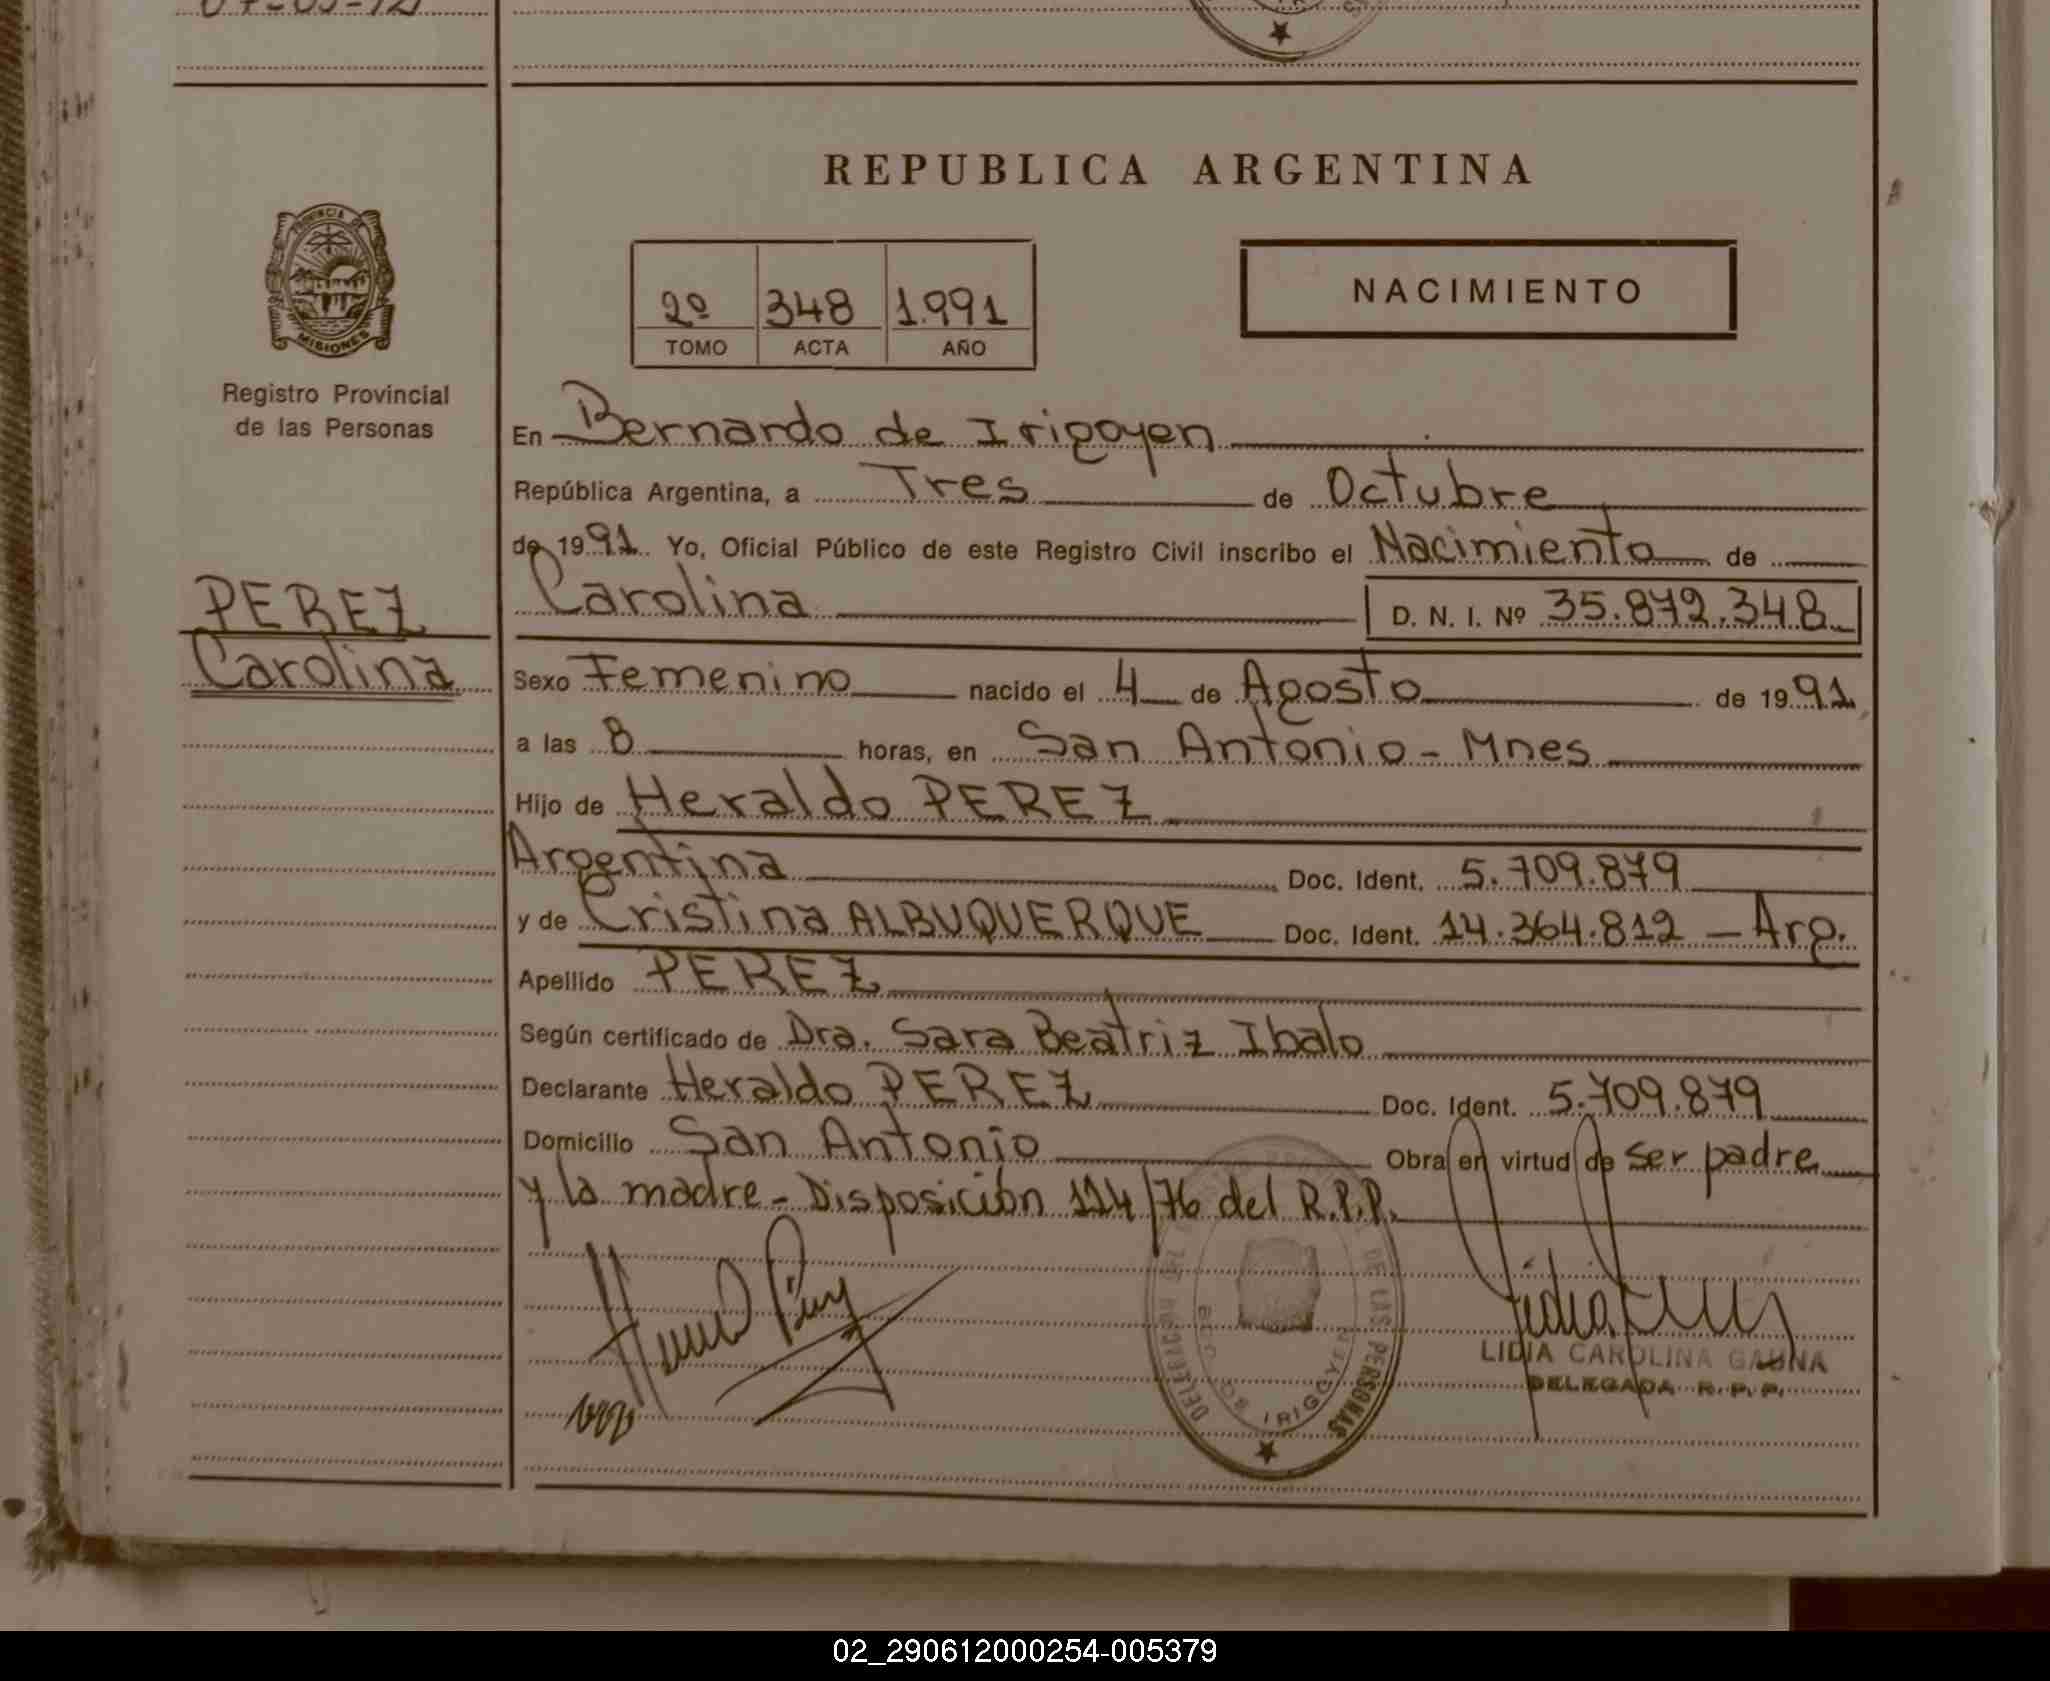 07-05-12
REPUBLICA ARGENTINA
PROVINCIA DE
MISIONES
Registro Provincial
de las Personas
2º 348 1.991
TOMO ACTA AÑO
NACIMIENTO
En Bernardo de Irigoyen
República Argentina, a Tres de Octubre
de 1991 Yo, Oficial Público de este Registro Civil inscribo el Nacimiento de
Carolina D. N. I. Nº 35.872.348
PEREZ
Carolina
Sexo Femenino nacido el 4 de Agosto de 1991
a las 8 horas, en San Antonio - Mnes
Hijo de Heraldo PEREZ
Argentina Doc. Ident. 5.709.879
y de Cristina ALBUQUERQUE Doc. Ident. 14.364.812 - Arg.
Apellido PEREZ
Según certificado de Dra. Sara Beatriz Ibalo
Declarante Heraldo PEREZ Doc. Ident. 5.709.879
Domicilio San Antonio Obra en virtud de ser padre
y la madre - Disposición 114/76 del R.P.P.
DE LAS PERSONAS
IRIGOYEN
LIDIA CAROLINA GAUNA
DELEGADA R.P.P.
02_290612000254-005379